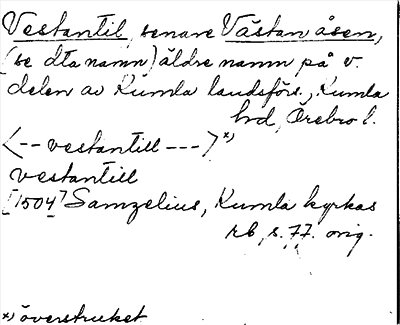 Vestantil, senare Västanåsen,
(se dta namn) äldre namn på v.
delen av Kumla landsförs., Kumla
hd, Örebro l.
<-- vestantill --->x)
vestantill
[1504] Samzelius, Kumla kyrkas
rb, s. 77. orig.
x) överstruket